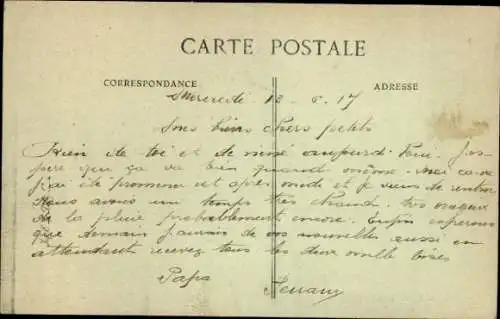 CARTE POSTALE
CORRESPONDANCE
ADRESSE
Mercredi 17
Mes biens Chers petits
Rien de toi et de aujourd'hui. J'es-
père que ça va bien quand même. Moi
j'ai été promener cet après midi et je viens de rentrer
Nous avons un temps très chaud. très orageux
de la pluie probablement encore. Enfin esperons
que demain j'aurais de vos nouvelles aussi en
attendant recevez tous les deux mille bises
Papa